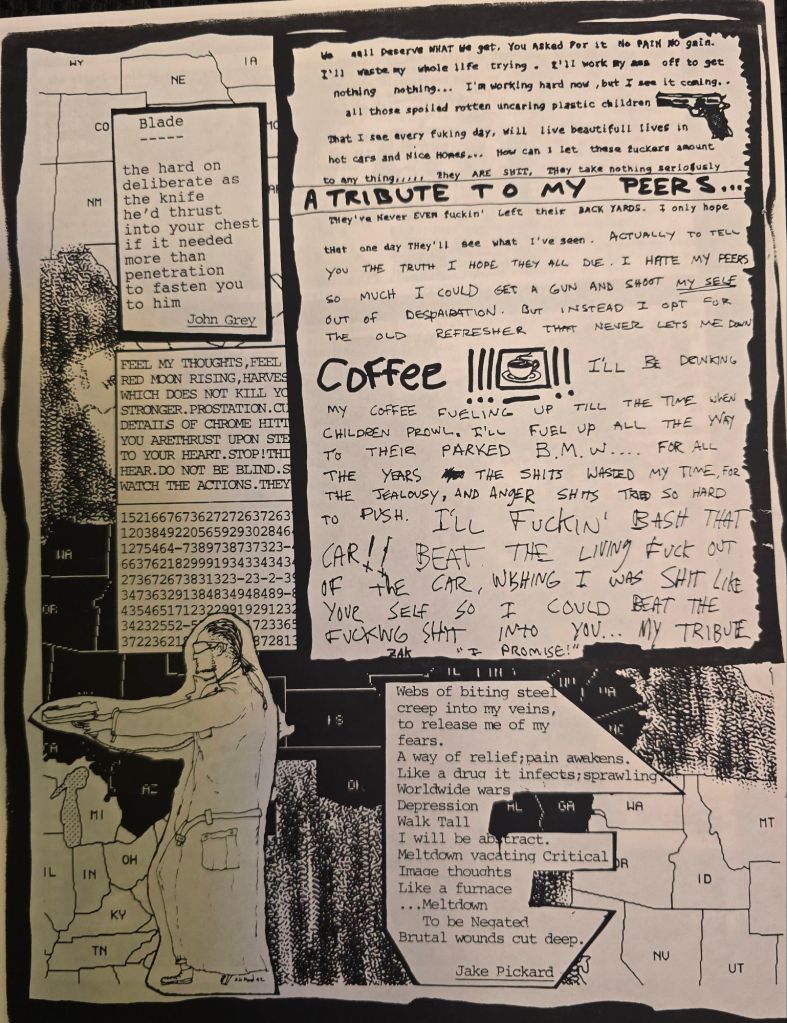 WY
NE
IA
CO
MO
NM
AR
Blade
-----
the hard on
deliberate as
the knife
he'd thrust
into your chest
if it needed
more than
penetration
to fasten you
to him
John Grey
We aall Deserve WHAT We get, You Asked For it No PAIN No gain.
I'll waste my whole life trying. I'll work my ass off to get
nothing nothing... I'm working hard now, but I see it coming..
all those spoiled rotten uncaring plastic children
That I see every fuking day, will live beautifull lives in
hot cars and Nice Homes... How can I let these fuckers amount
to any thing,,,,, They ARE SHIT, THey take nothing seriously
A TRIBUTE TO MY PEERS...
THey've Never EVEN fuckin' Left their BACK YARDS. I only hope
that one day They'll see what I've seen. ACTUALLY TO TELL
YOU THE TRUTH I HOPE THEY ALL DIE. I HATE MY PEERS
SO MUCH I COULD GET A GUN AND SHOOT MY SELF
OUT OF DESPAIRATION. BUT INSTEAD I OPT FOR
THE OLD REFRESHER THAT NEVER LETS ME DOWN
COFFEE !!! !! I'LL BE DRINKING
MY COFFEE FUELING UP TILL THE TIME WHEN
CHILDREN PROWL. I'LL FUEL UP ALL THE WAY
TO THEIR PARKED B.M.W.... FOR ALL
THE YEARS THE SHITS WASTED MY TIME, FOR
THE JEALOUSY, AND ANGER SHITS TRIED SO HARD
TO PUSH. I'LL FUCKIN' BASH THAT
CAR!! BEAT THE LIVING FUCK OUT
OF THE CAR, WISHING I WAS SHIT LIKE
YOUR SELF SO I COULD BEAT THE
FUCKING SHIT INTO YOU... MY TRIBUTE
ZAK "I PROMISE!"
FEEL MY THOUGHTS,FEEL
RED MOON RISING,HARVES
WHICH DOES NOT KILL YO
STRONGER.PROSTATION.CU
DETAILS OF CHROME HITT
YOU ARETHRUST UPON STE
TO YOUR HEART.STOP!THI
HEAR.DO NOT BE BLIND.S
WATCH THE ACTIONS.THEY
15216676736272726372637
1203849220565929302846
1275464-7389738737323-4
66376218299919343434343
273672673831323-23-2-39
347363291384834948489-8
43546517123229919291232
34232552-5
37223621
72873813
WA
OR
IL
IN
KS
OK
NC
AZ
MI
OH
IL
IN
KY
TN
Webs of biting steel
creep into my veins,
to release me of my
fears.
A way of relief;pain awakens.
Like a drug it infects;sprawling.
Worldwide wars
Depression
Walk Tall
I will be abstract.
Meltdown vacating Critical
Image thoughts
Like a furnace
...Meltdown
To be Negated
Brutal wounds cut deep.
Jake Pickard
AL
GA
WA
MT
OR
ID
NV
UT